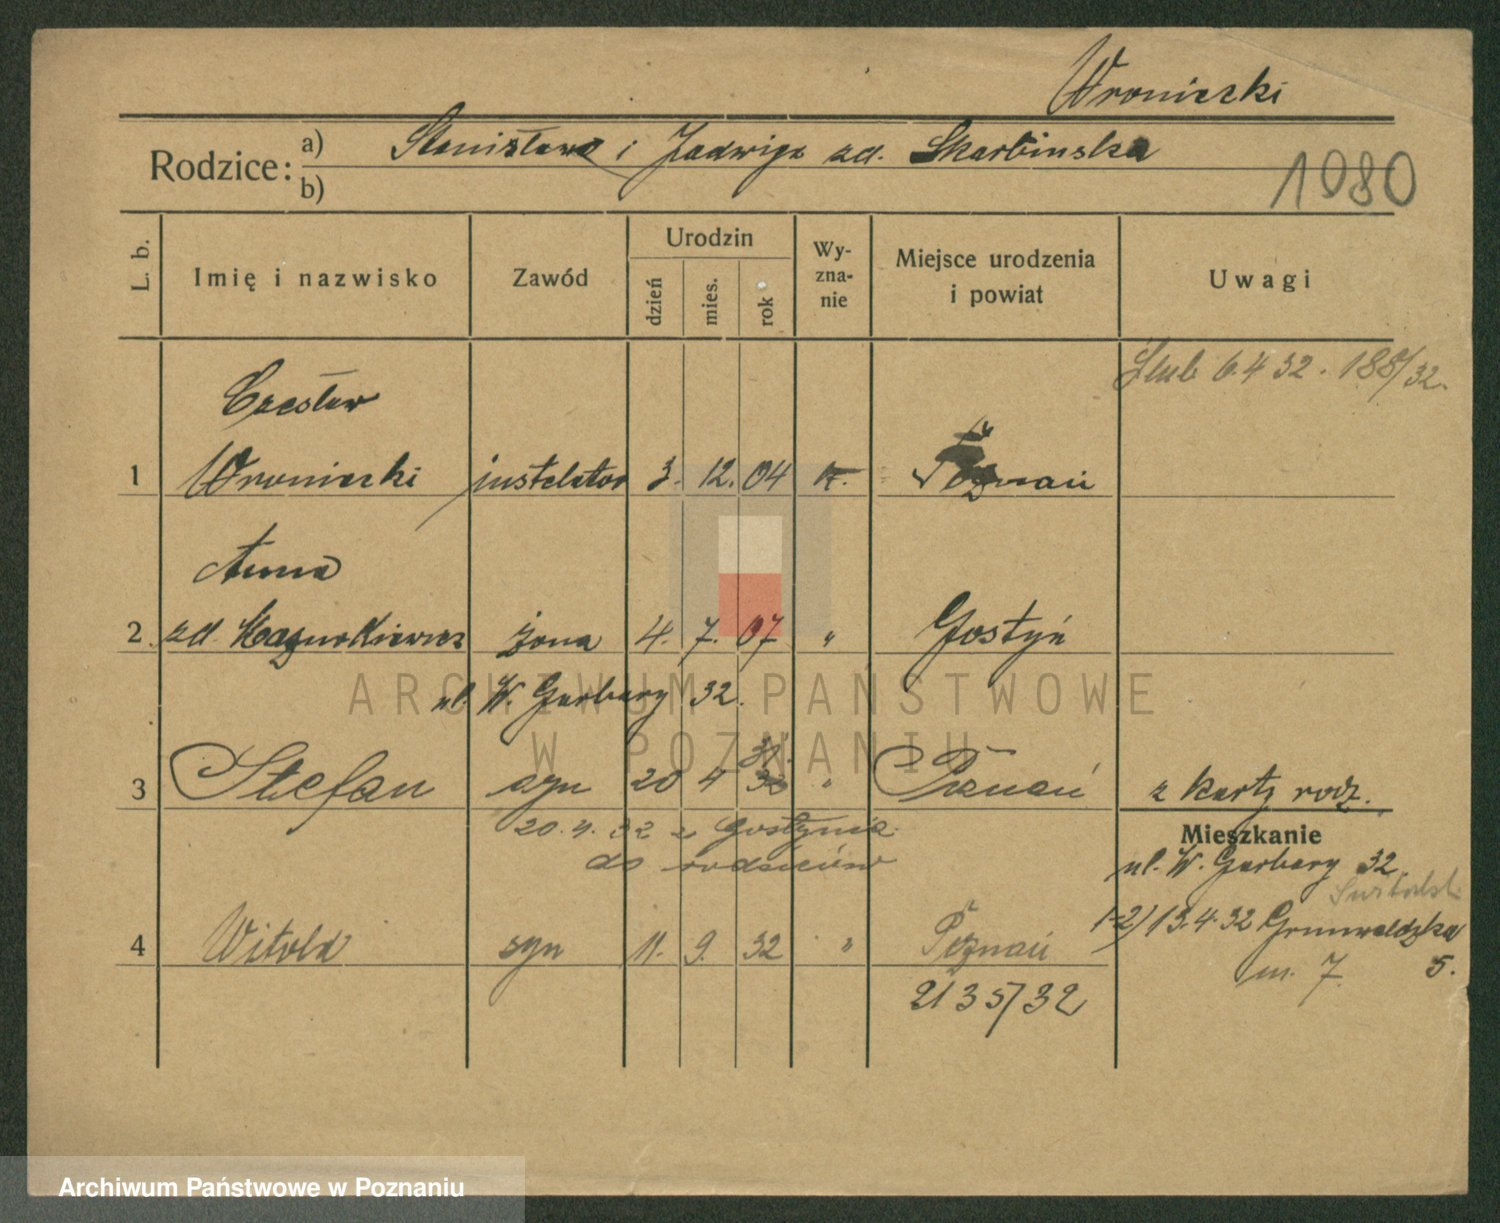 Wroniecki
Rodzice: a) Stanisław i Jadwiga zd. Skarbinska
b)
1980
L. b. Imię i nazwisko Zawód Urodzin dzień mies. rok Wy-zna-nie Miejsce urodzenia i powiat Uwagi
Ślub 6.4 32. 188/32.
Czesław
1 Wroniecki instalator 3. 12. 04 k. Poznań
Anna
2 zd. Kaznurkiewicz żona 4. 7. 07 " Gostyń
ul. W. Garbary 32.
31.
3 Stefan syn 20 4 32 " Poznań z karty rodz.
20.4.32 z Gostynia
do rodziców
Mieszkanie
ul. W. Garbary 32
1-2) 13.4.32 Grunwaldzka
m. 7. 5.
4 Witold syn 11. 9. 32 " Poznań
2135/32
ARCHIWUM PAŃSTWOWE
W POZNANIU
Archiwum Państwowe w Poznaniu